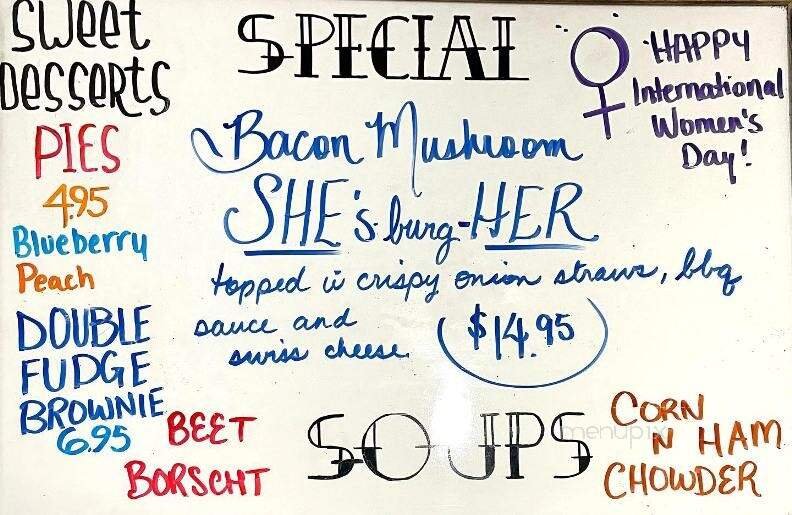 Sweet
Desserts
PIES
4.95
Blueberry
Peach
DOUBLE
FUDGE
BROWNIE
6.95
SPECIAL
Bacon Mushroom
SHE's-burg-HER
topped w crispy onion straws, bbq
sauce and
swiss cheese
$14.95
HAPPY
International
Women's
Day!
SOUPS
BEET
BORSCHT
CORN
N HAM
CHOWDER
menupix